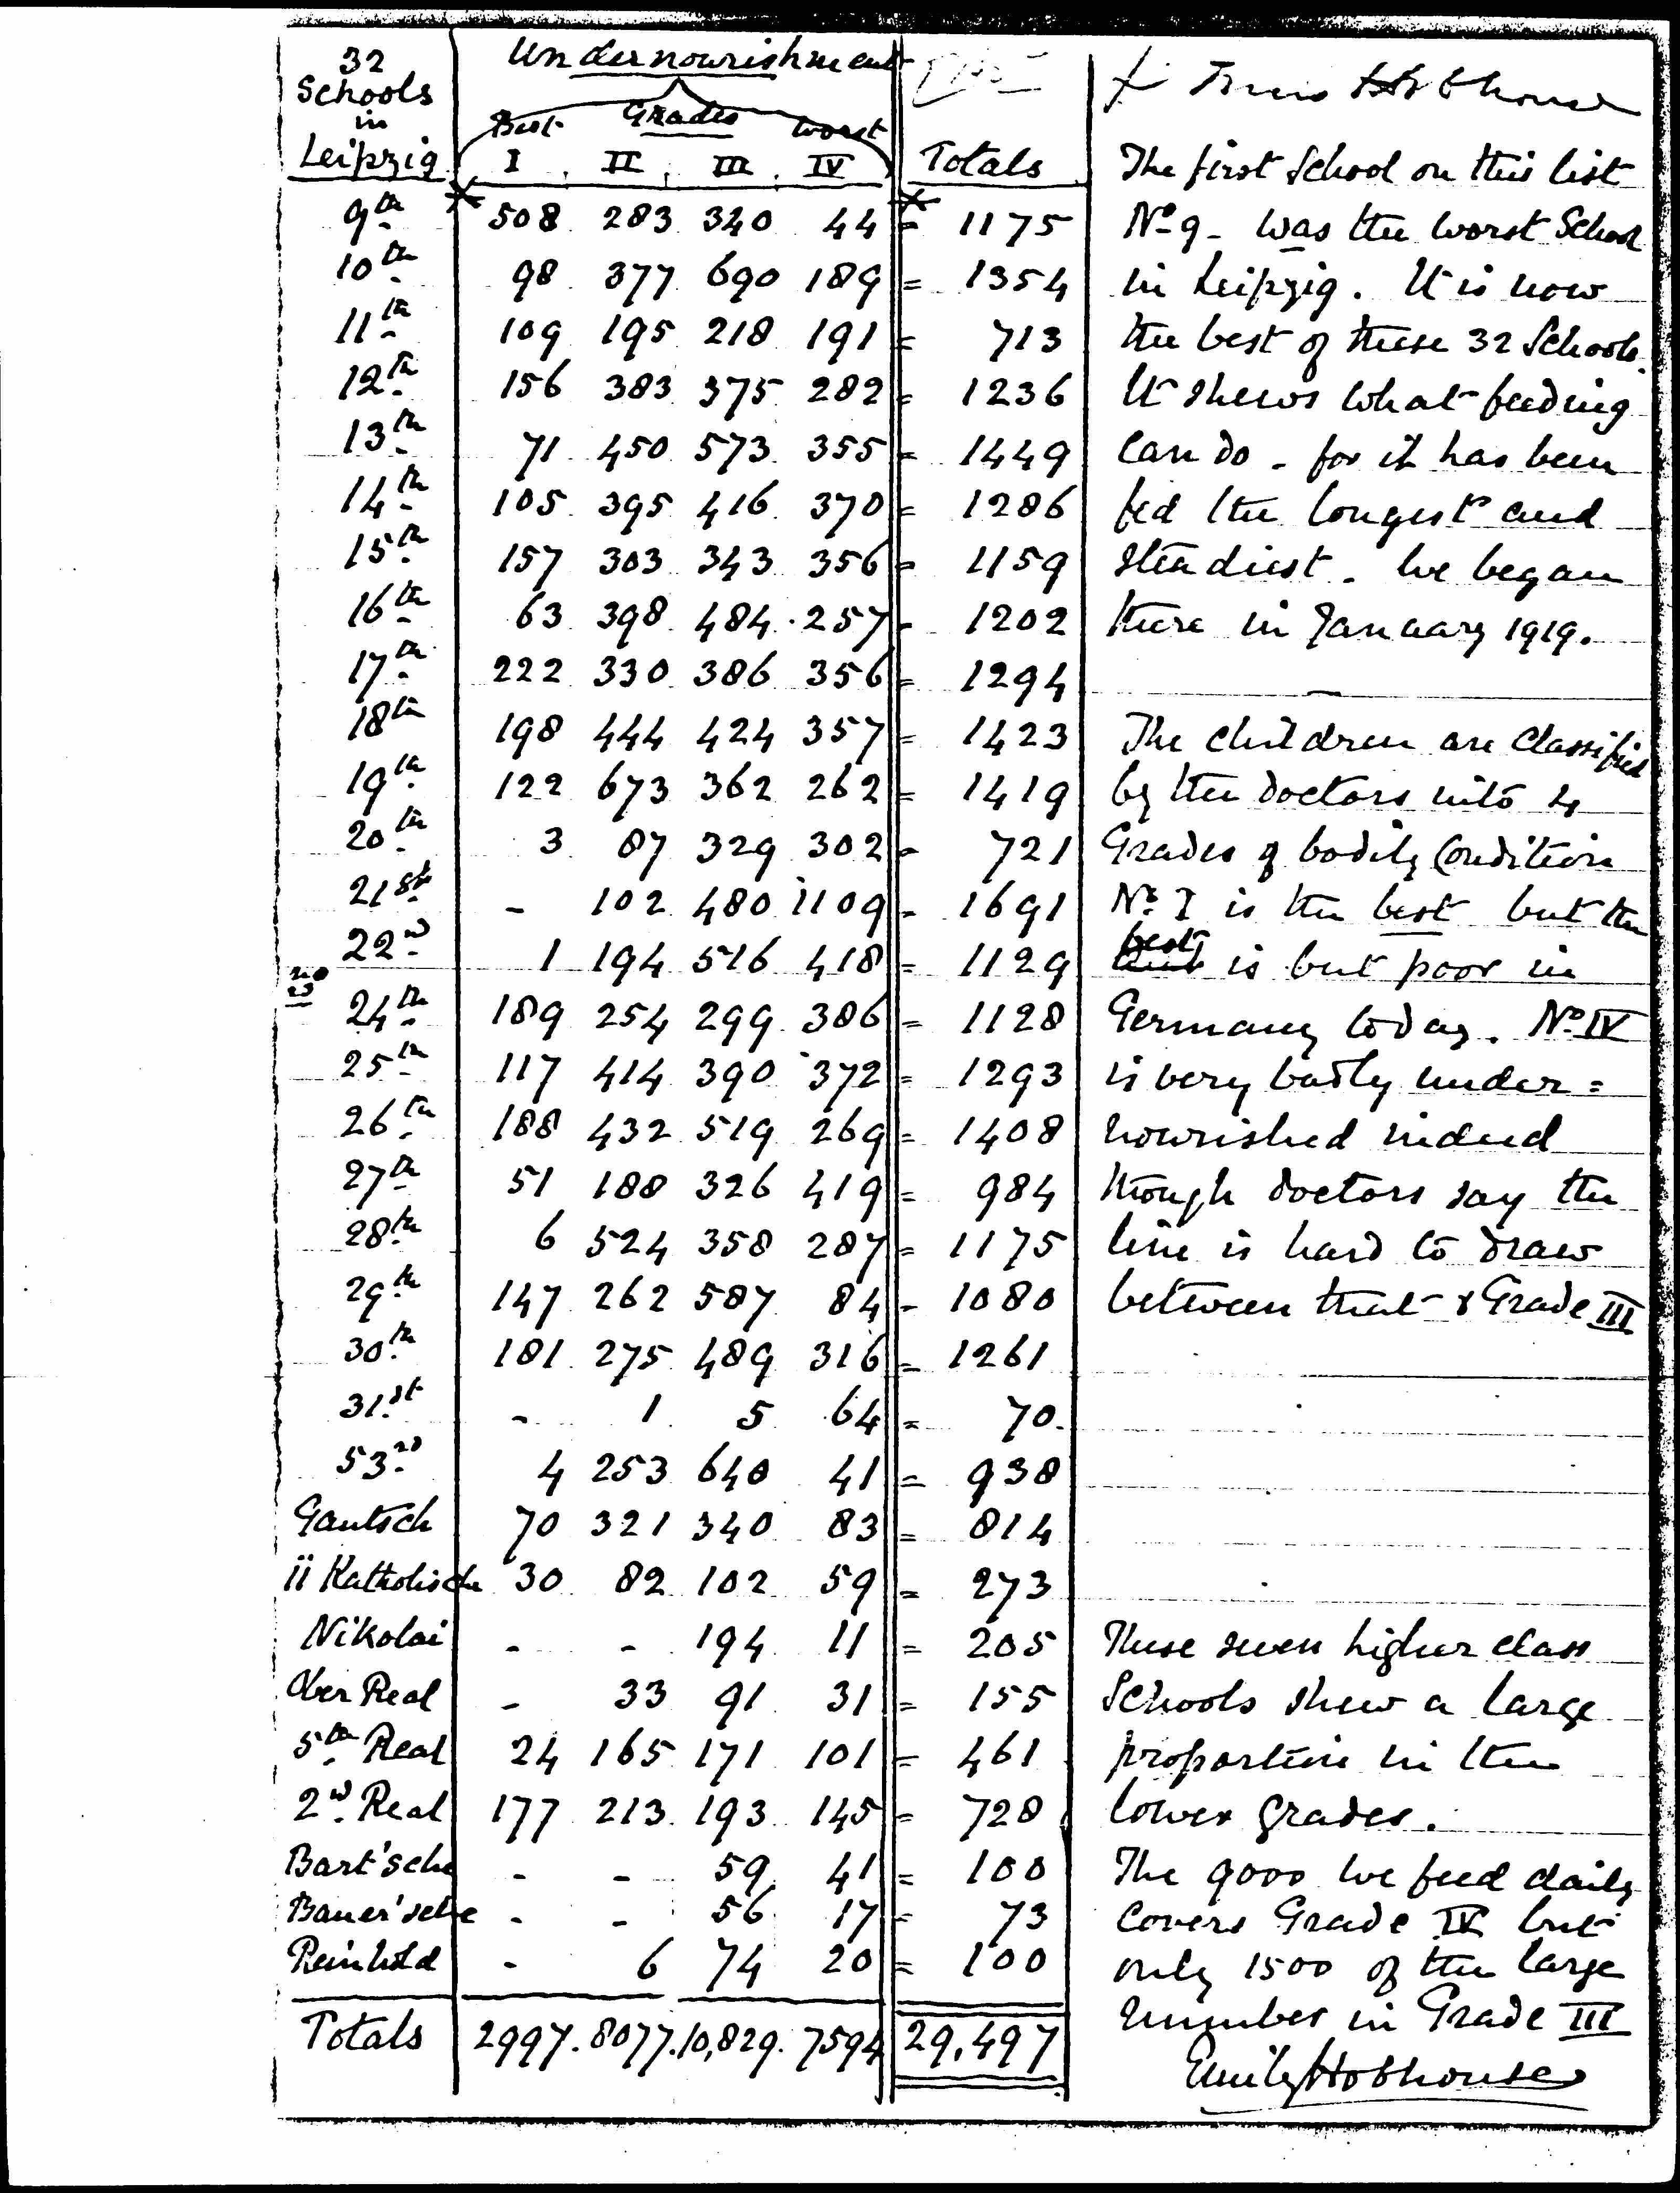 32
Schools
in
Leipzig
Undernourishment
Grades
Best worst
I II III IV
Totals
9th 508 283 340 44 = 1175
10th 98 377 690 189 = 1354
11th 109 195 218 191 = 713
12th 156 383 375 282 = 1236
13th 71 450 573 355 = 1449
14th 105 395 416 370 = 1286
15th 157 303 343 356 = 1159
16th 63 398 484 257 = 1202
17th 222 330 386 356 = 1294
18th 198 444 424 357 = 1423
19th 122 673 362 262 = 1419
20th 3 87 329 302 = 721
21st - 102 480 1109 = 1691
22nd 1 194 516 418 = 1129
no 23
24th 189 254 299 386 = 1128
25th 117 414 390 372 = 1293
26th 188 432 519 269 = 1408
27th 51 188 326 419 = 984
28th 6 524 358 287 = 1175
29th 147 262 587 84 = 1080
30th 181 275 489 316 = 1261
31st - 1 5 64 = 70
53rd 4 253 640 41 = 938
Gautsch 70 321 340 83 = 814
ii Katholische 30 82 102 59 = 273
Nikolai - - 194 11 = 205
Ober Real - 33 91 31 = 155
5th Real 24 165 171 101 = 461
2nd Real 177 213 193 145 = 728
Bart'sche - - 59 41 = 100
Bauer'sche - - 56 17 = 73
Reinhold - 6 74 20 = 100
Totals 2997. 8077. 10,829. 7594 29,497
Hobhouse
The first School on this list
No 9 - was the worst School
in Leipzig. It is now
the best of these 32 Schools.
It shews what feeding
can do - for it has been
fed the longest and
steadiest. We began
there in January 1919.
The children are classified
by the doctors into 4
Grades of bodily Condition
No I is the best but the
best is but poor in
Germany today. No IV
is very badly under=
nourished indeed
though doctors say the
line is hard to draw
between that & Grade III
These seven higher class
Schools shew a large
proportion in the
lower grades.
The 9000 we feed daily
covers Grade IV but
only 1500 of the large
number in Grade III
Emily Hobhouse